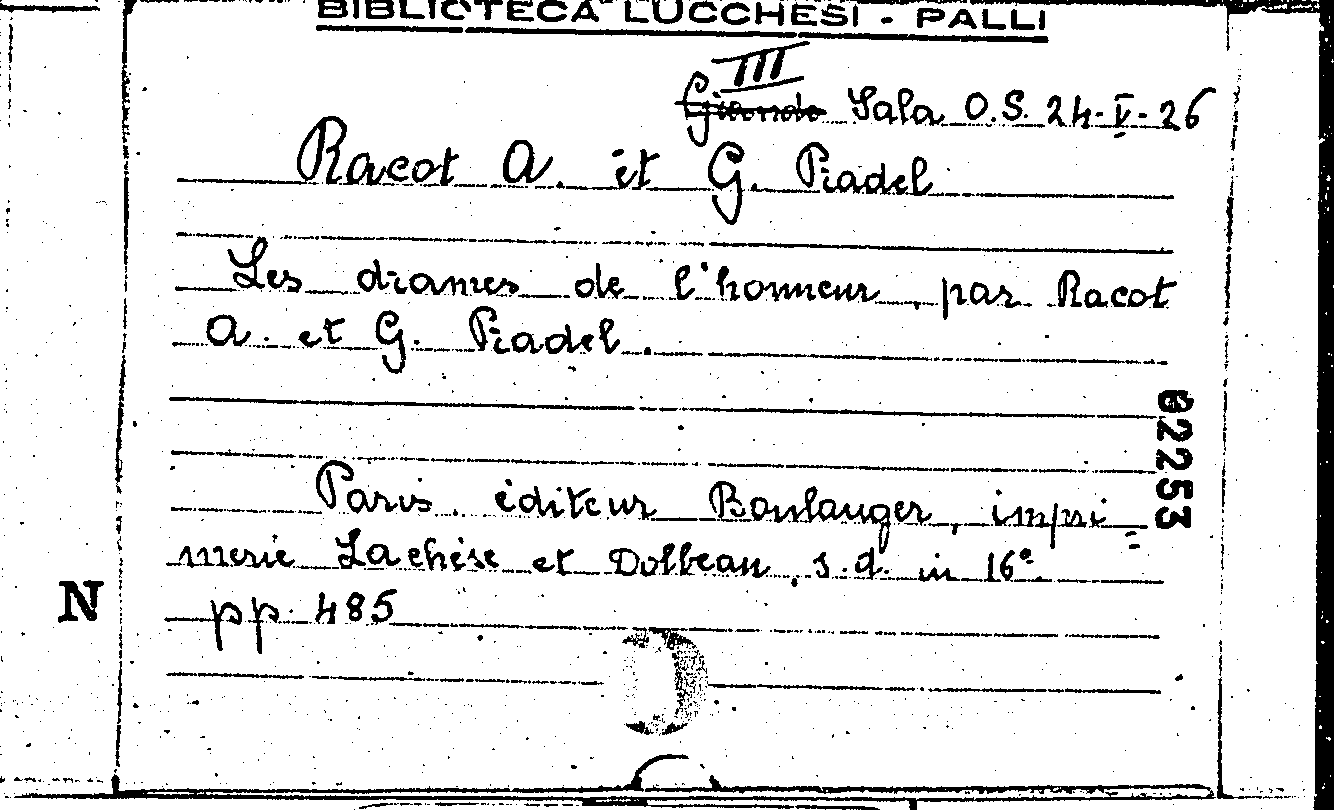 BIBLIOTECA LUCCHESI - PALLI
III
Sala O.S. 24-V-26
Racot A. et G. Pradel
Les drames de l'honneur, par Racot
A. et G. Pradel.
02253
Paris. éditeur Boulanger, impri=
merie Lachèse et Dolbeau, s.d. in 16°
N
pp. 485